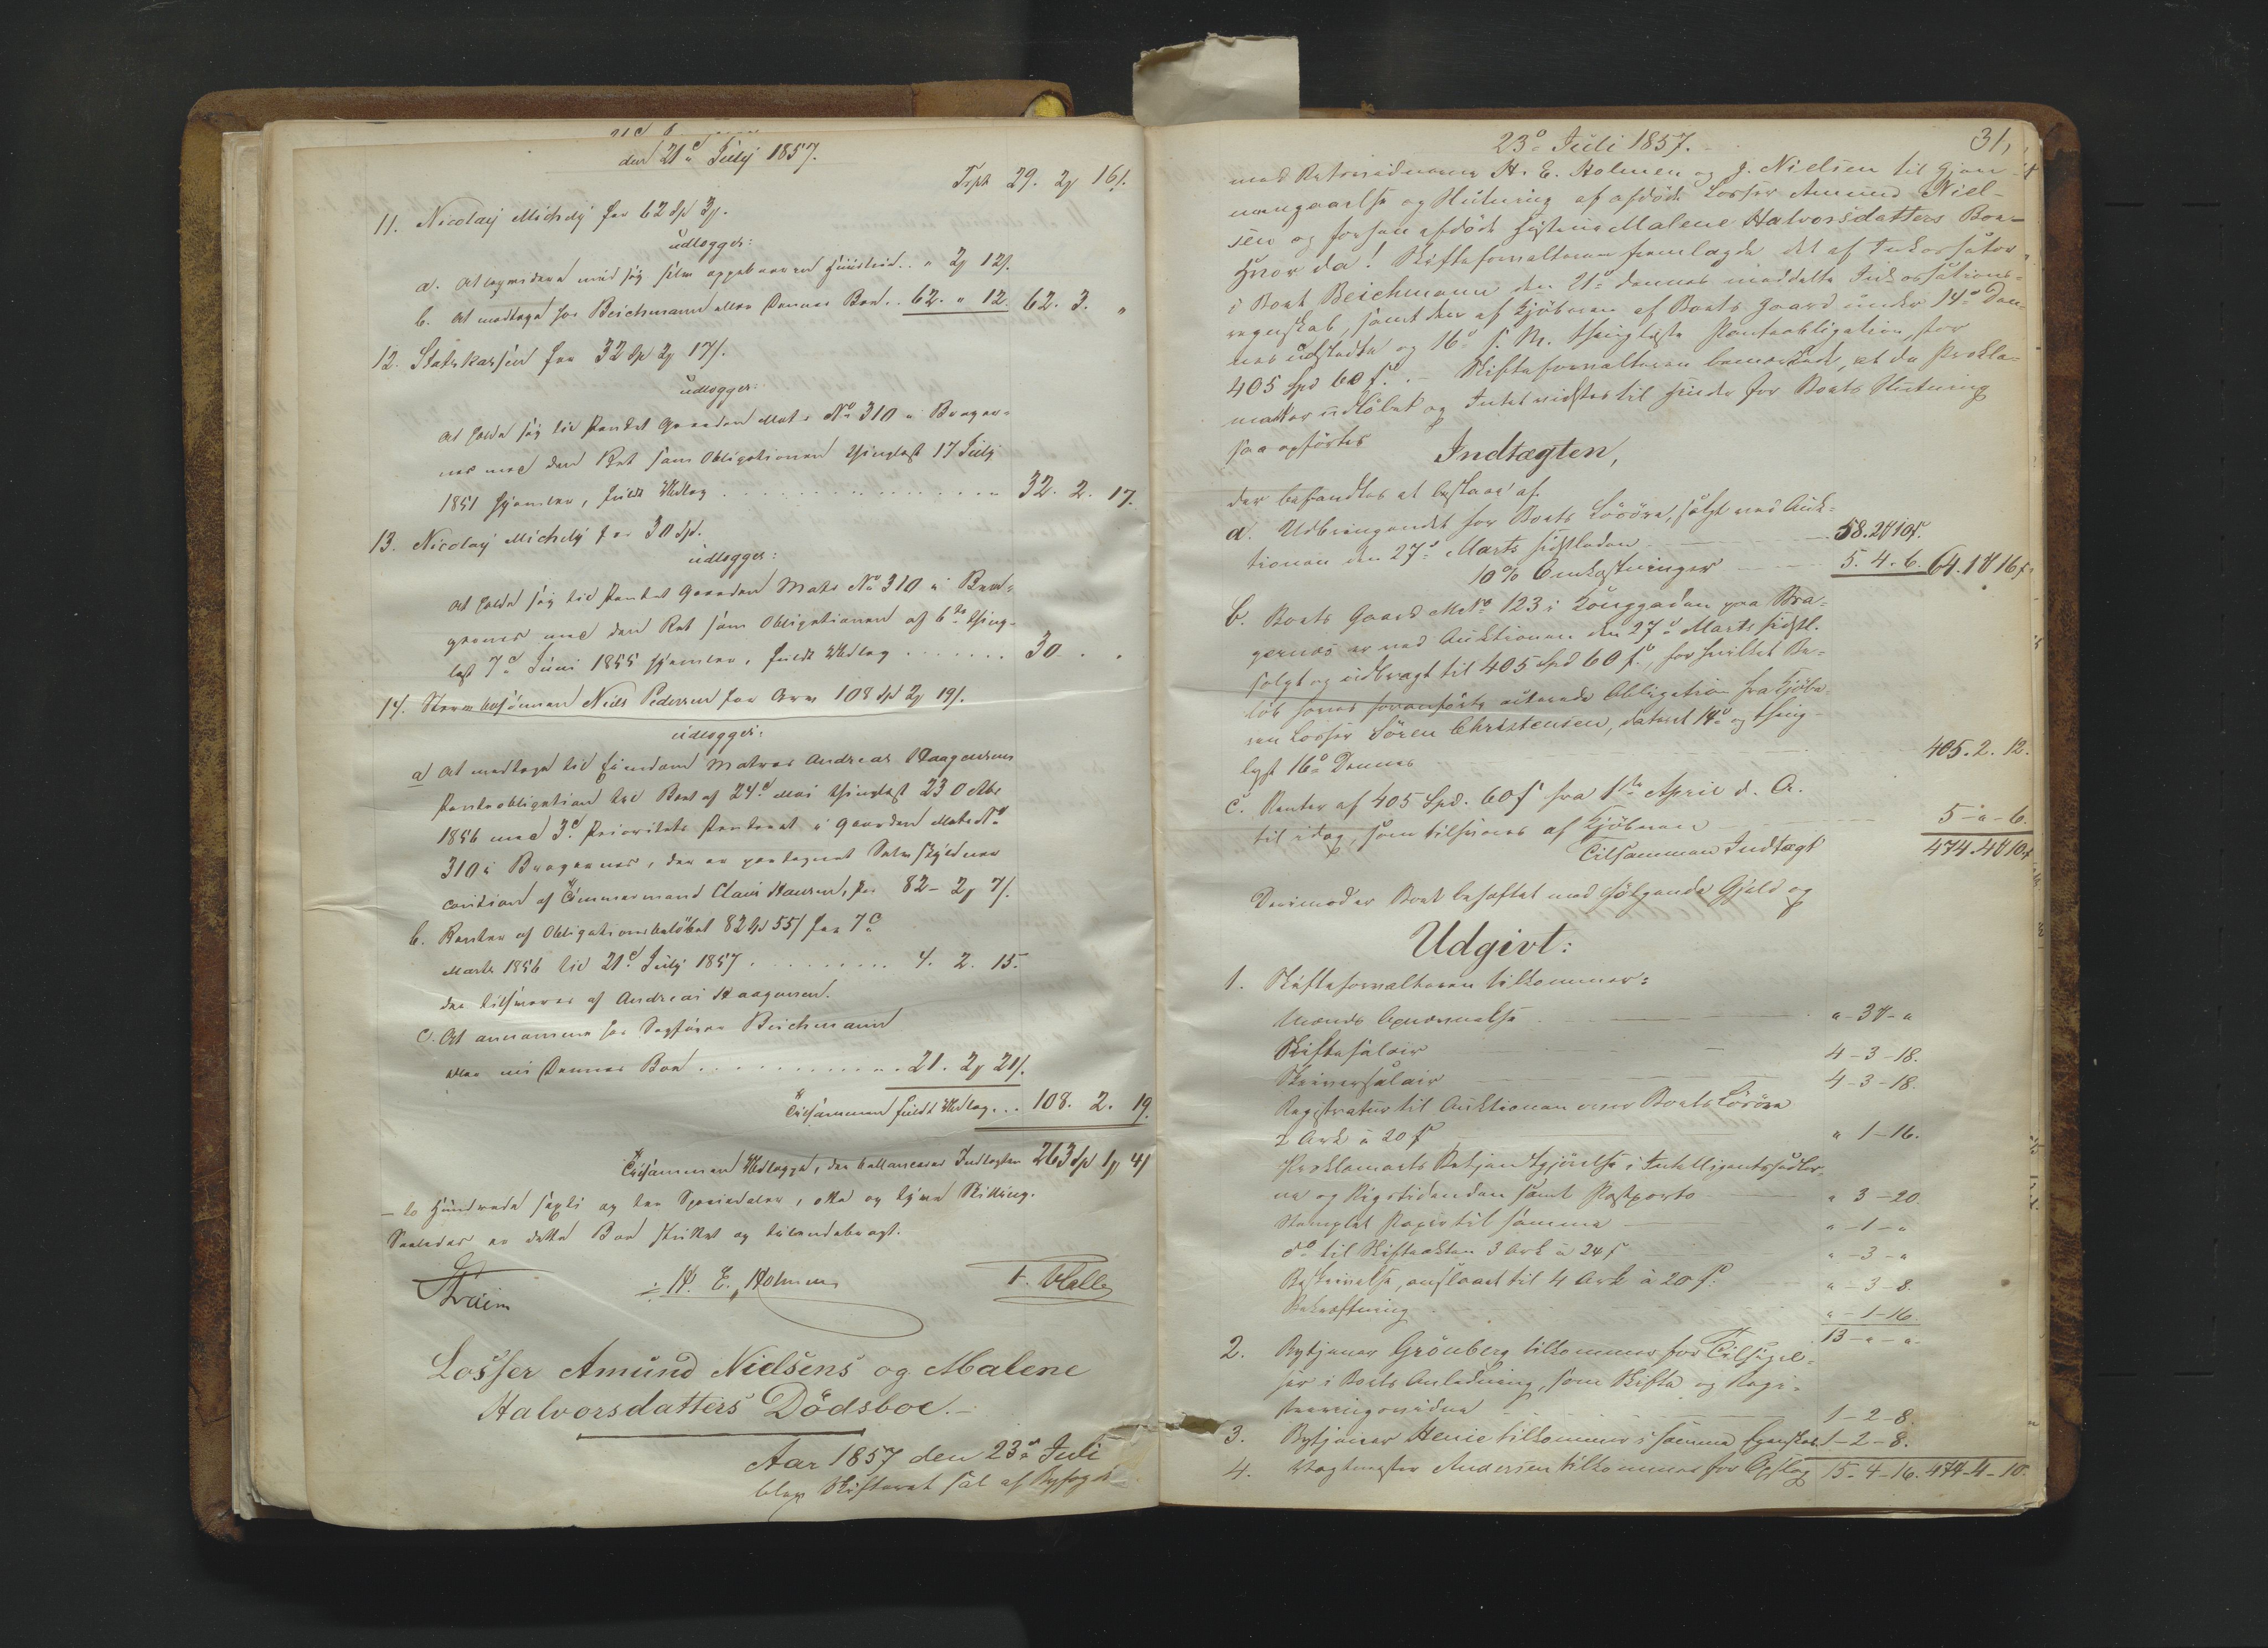 den 21de July 1857.
Trpt 29. 2 16
11. Nicolay Michely faa 62 Spd 3
udlegges:
a. At liqvidere med sig selv oppebaarne Huusleie .. " 2 12
b. At modtage hos Beichmann eller dennes Boe .. 62. " 12. 62. 3. "
12. Statskassen faa 32 Sp 2 17
udlegges:
At holde sig til Pantet Gaarden Mats No 310 i Brager-
næs med den Ret som Obligationen thinglæst 17 July
1851 hjemler, fuldt Udlæg . . . . 32. 2. 17.
13. Nicolay Michely faa 30 Sp.
udlegges:
At holde sig til Pantet Gaarden Mats No 310 i Bra-
gernæs med den Ret som Obligationen af 6te thing-
læst 7de Juni 1855 hjemler, fuldt Udlæg . . . . 30 . .
14. Niels Pedersen faa 108 Sp 2 19
udlegges:
a At modtage til Eiendom Matros Andreas Haagensens
Panteobligation til Boet af 24de Mai thinglæst 23 Octbr
1856 med 3die Prioritets Panteret i Gaarden Mats No
310 i Bragernæs, der er paategnet Selvskyldner
caution af Tømmermand Claus Hansen, for 82 - 2 7
b. Renter af Obligationsbeløbet 82 Sp 55 fra 7de
Marts 1856 til 21de July 1857 . . . . 4. 2. 15.
der tilsvares af Andreas Haagensen.
c. At annamme hos Sagfører Beichmann
eller i dennes Boe . . . . 21. 2 21
Tilsammen fuldt Udlæg . . . 108. 2. 19.
Tilsammen Udlægge, der ballancerer Indtægten 263 Sp 1 4
– to Hundrede sexti og tre Speciedaler, otte og tyve Skilling.
Saaledes er dette Boe skiftet og tilendebragt.
H. E. Holmen
Losser Amund Nielsens og Malene
Halvorsdatters Dödsboe.–
Aar 1857 den 23de Juli
blev Skifteret sat af Byfoged
23de Juli 1857.
31,
med Retsvidnerne H. E. Holmen og J. Nielsen til Gjen-
nemgaaelse og Slutning af afdöde Losser Amund Niel-
sen og forhen afdöde Hustrue Malene Halvorsdatters Boe –
Hvor da! Skifteforvalteren fremlagde det af Inkassator
i Boet Beichmann den 21de dennes meddelte Inkassations-
regnskab, samt den af Kjöberen af Boets Gaard under 14de Den-
nes udstedte og 16de s. M. thinglæste Panteobligation, for
405 Spd 60 s. – Skifteforvalteren bemærkede, at da Prokla-
mather udlöbet og Intet vidstes til Hinder for Boets Slutning
saa opförtes
Indtægten,
der befandtes at bestaae af.
a. Udbringendet for Boets Lösöre, solgt ved Auk-
tionen den 27de Marts sidstleden 58.2 10
10% Omkostninger 5. 4. 6. 64. 1 16
b. Boets Gaard MNo 123 i Konggaden paa Bra-
gernæs er ved Auktionen den 27de Marts sidstl.
solgt og udbragt til 405 Spd 60 s, for hvilket Be-
löb haves foranförte citerede Obligation fra Kjöbe-
ren Losser Sören Christensen, dateret 14de og thing-
lyst 16de Dennes 405. 2. 12.
c. Renter af 405 Spd. 60 s fra 1ste April d. A.
til idag, som tilsvares af Kjöberen 5 - " - 6.
Tilsammen Indtægt 474. 4 10
Derimod er Boet behæftet med fölgende Gjeld og
Udgivt:
1. Skifteforvalteren tilkommer:
Mænds Opnævnelse " - 3 - "
Skiftesalair 4 - 3 - 18.
Skriversalair 4 - 3 - 18.
Registratur til Auktionen over Boets Lösöre
2 Ark à 20 s " 1 - 16.
Proklamaets Bekjendtgjörelse i Intelligentssedler-
ne og Rigstidenden samt Postporto " 3 - 20.
Stemplet Papir til samme " - 1 - "
do til Skifteakten 3 Ark à 24 s " - 3 - "
Beskrivelse, anslaaet til 4 Ark à 20 s. " - 3 - 8.
Bekræftning " - 1 - 16.
13 - " - ".
2. Bytjener Grönberg tilkommer for Tilsigel-
ser i Boets Anledning, som Skifte og Regi-
streringsvidne 1 - 2 - 8.
3. Bytjener Henie tilkommer i samme Egenskab 1 - 2 - 8.
4. Vagtmester Andersen tilkommer for Opslag 15 - 4 - 16. 474 - 4 - 10.